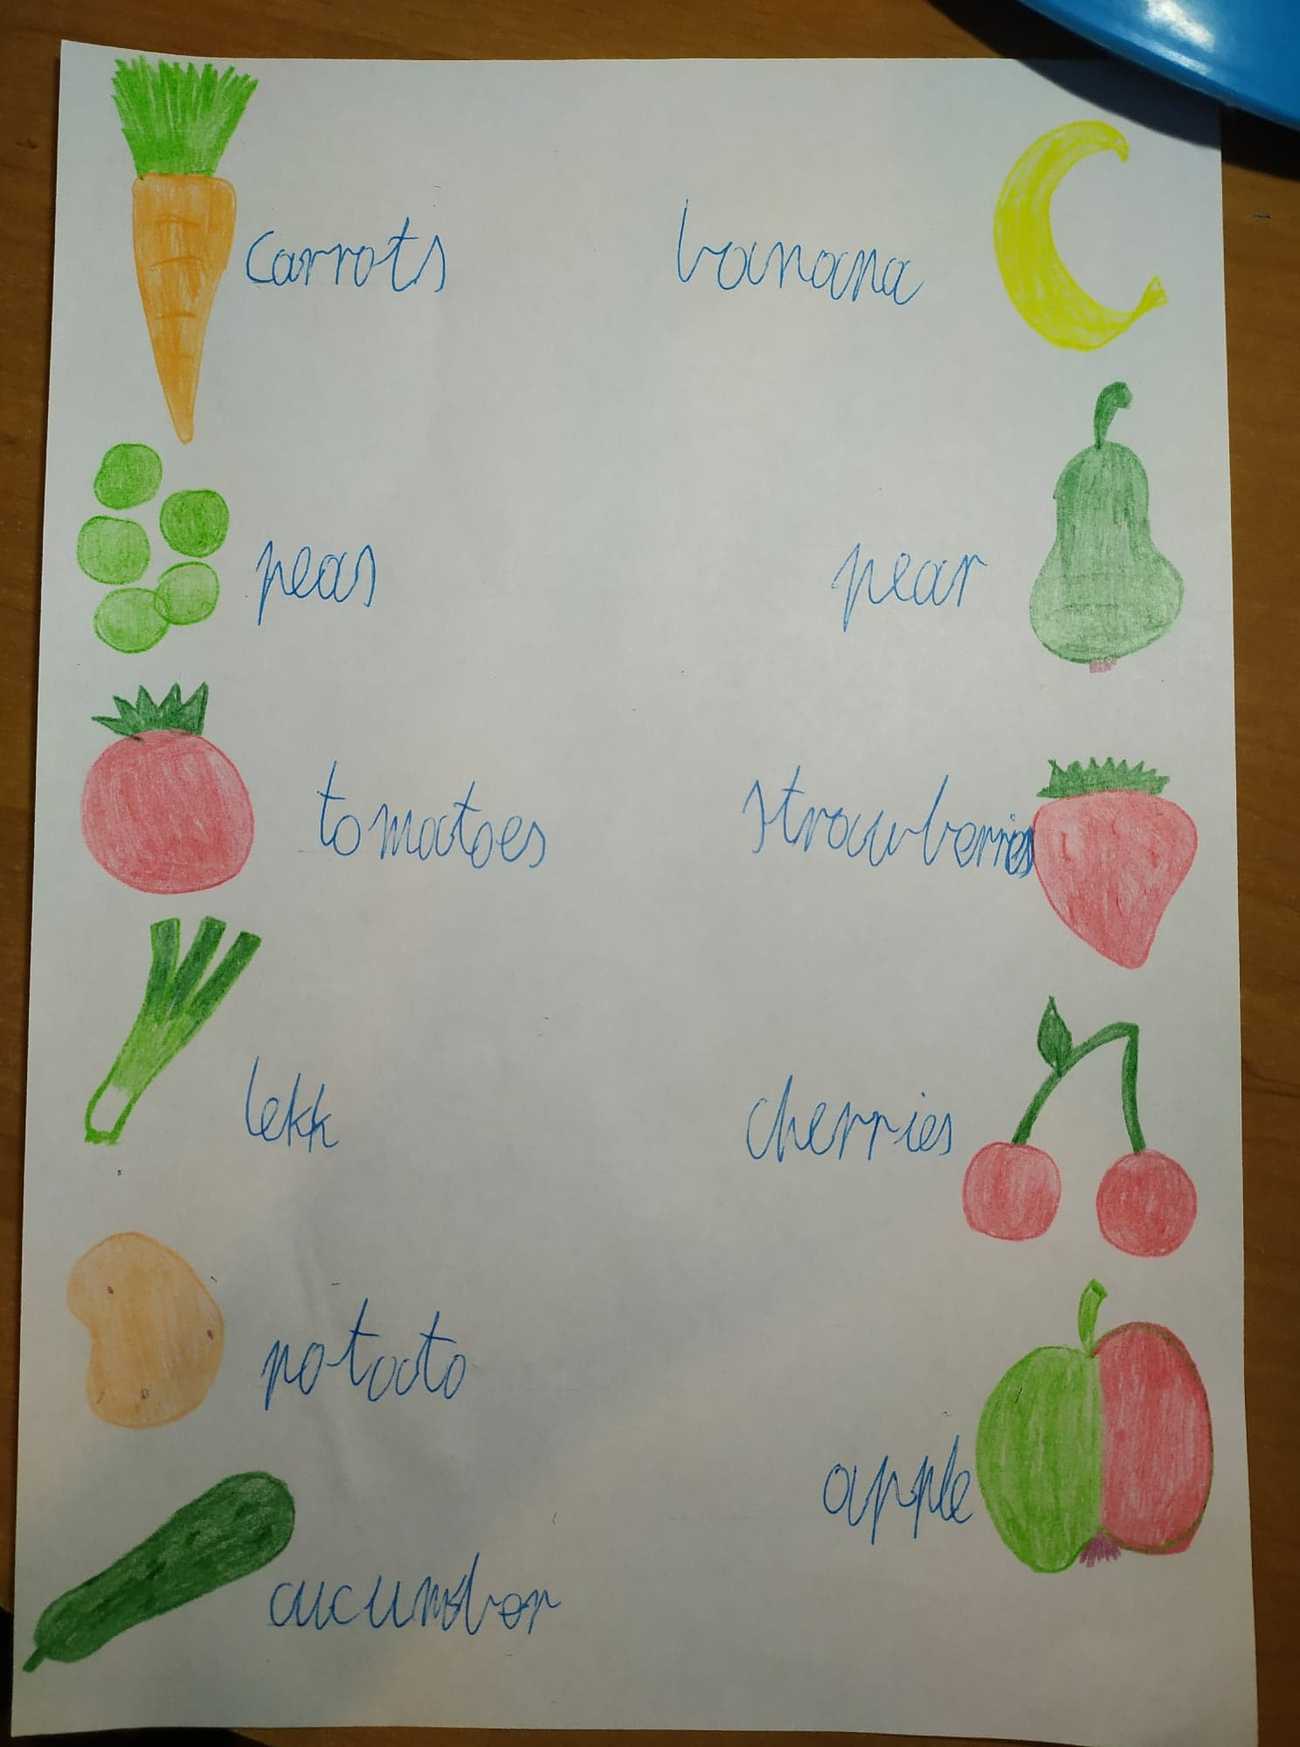 carrots
banana
peas
pear
tomatoes
strawberries
lekk
cherries
potato
apple
cucumber